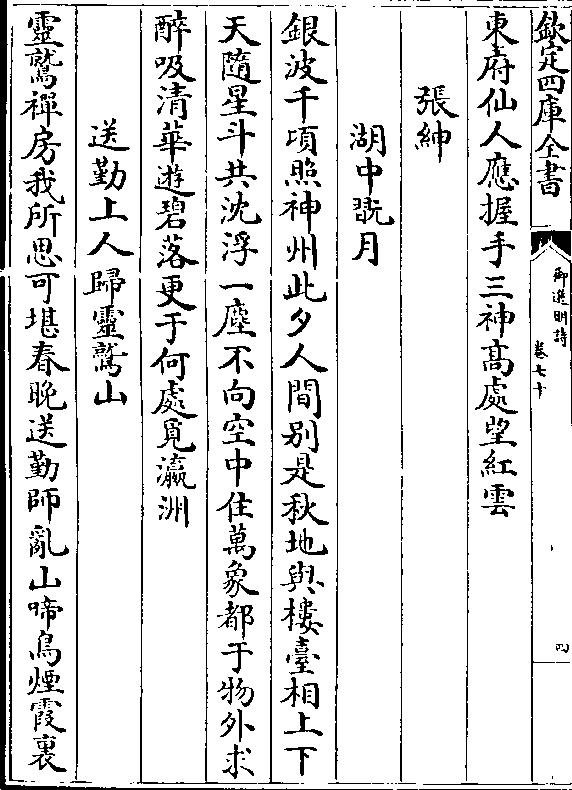 欽定四庫全書
御選明詩
卷七十
四
東府仙人應握手三神高處望紅雲
張紳
湖中翫月
銀波千頃照神州此夕人間别是秋地與樓臺相上下
天隨星斗共沈浮一塵不向空中住萬象都于物外求
醉吸清華遊碧落更于何處覓瀛洲
送勤上人歸靈鷲山
靈鷲禪房我所思可堪春晚送勤師亂山啼鳥煙霞裏